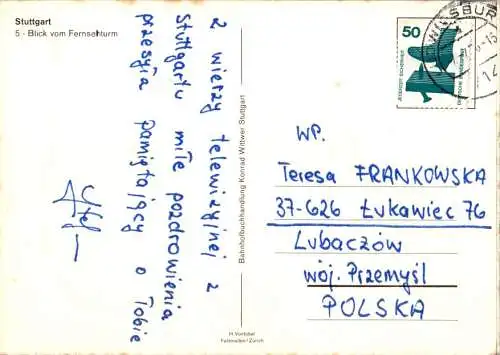 Stuttgart
5 - Blick vom Fernsehturm
z wieży telewizyjnej z
Stuttgartu miłe pozdrowienia
przesyła pamiętający o Tobie
Stef
Bahnhofbuchhandlung Konrad Wittwer Stuttgart
H. Vontobel
Feldmeilen/Zürich
50
JEDERZEIT SICHERHEIT
DEUTSCHE BUNDESPOST
WP.
Teresa FRANKOWSKA
37-626 Łukawiec 76
Lubaczów
woj. Przemyśl
POLSKA